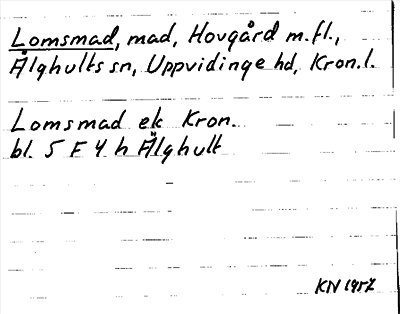 Lomsmad, mad, Hovgård m.fl.,
Älghults sn, Uppvidinge hd, Kron. l.
Lomsmad ek Kron.
bl. 5 F 4 h Älghult
KN 1957